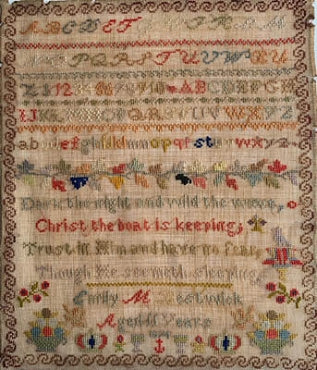 ABCDEF
PQRSTUVWXY
ABCDEFGH
IJKLMNOPQRSTUVWXYZ
abcdefghijklmnopqrstuvwxyz
Dark the night and wild the wave,
Christ the boat is keeping;
Trust in Him and have no fear,
Though He seemeth sleeping.
Emily M
Aged 11 Years